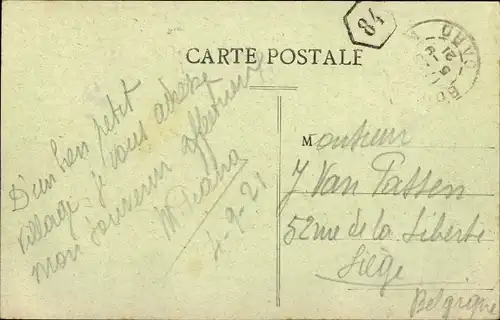 CARTE POSTALE
84
D'un bon petit
village, je vous adresse
mon souvenir affectueux
4-9-21
Monsieur
J Van Passen
52 rue de la Liberté
Liège
Belgique